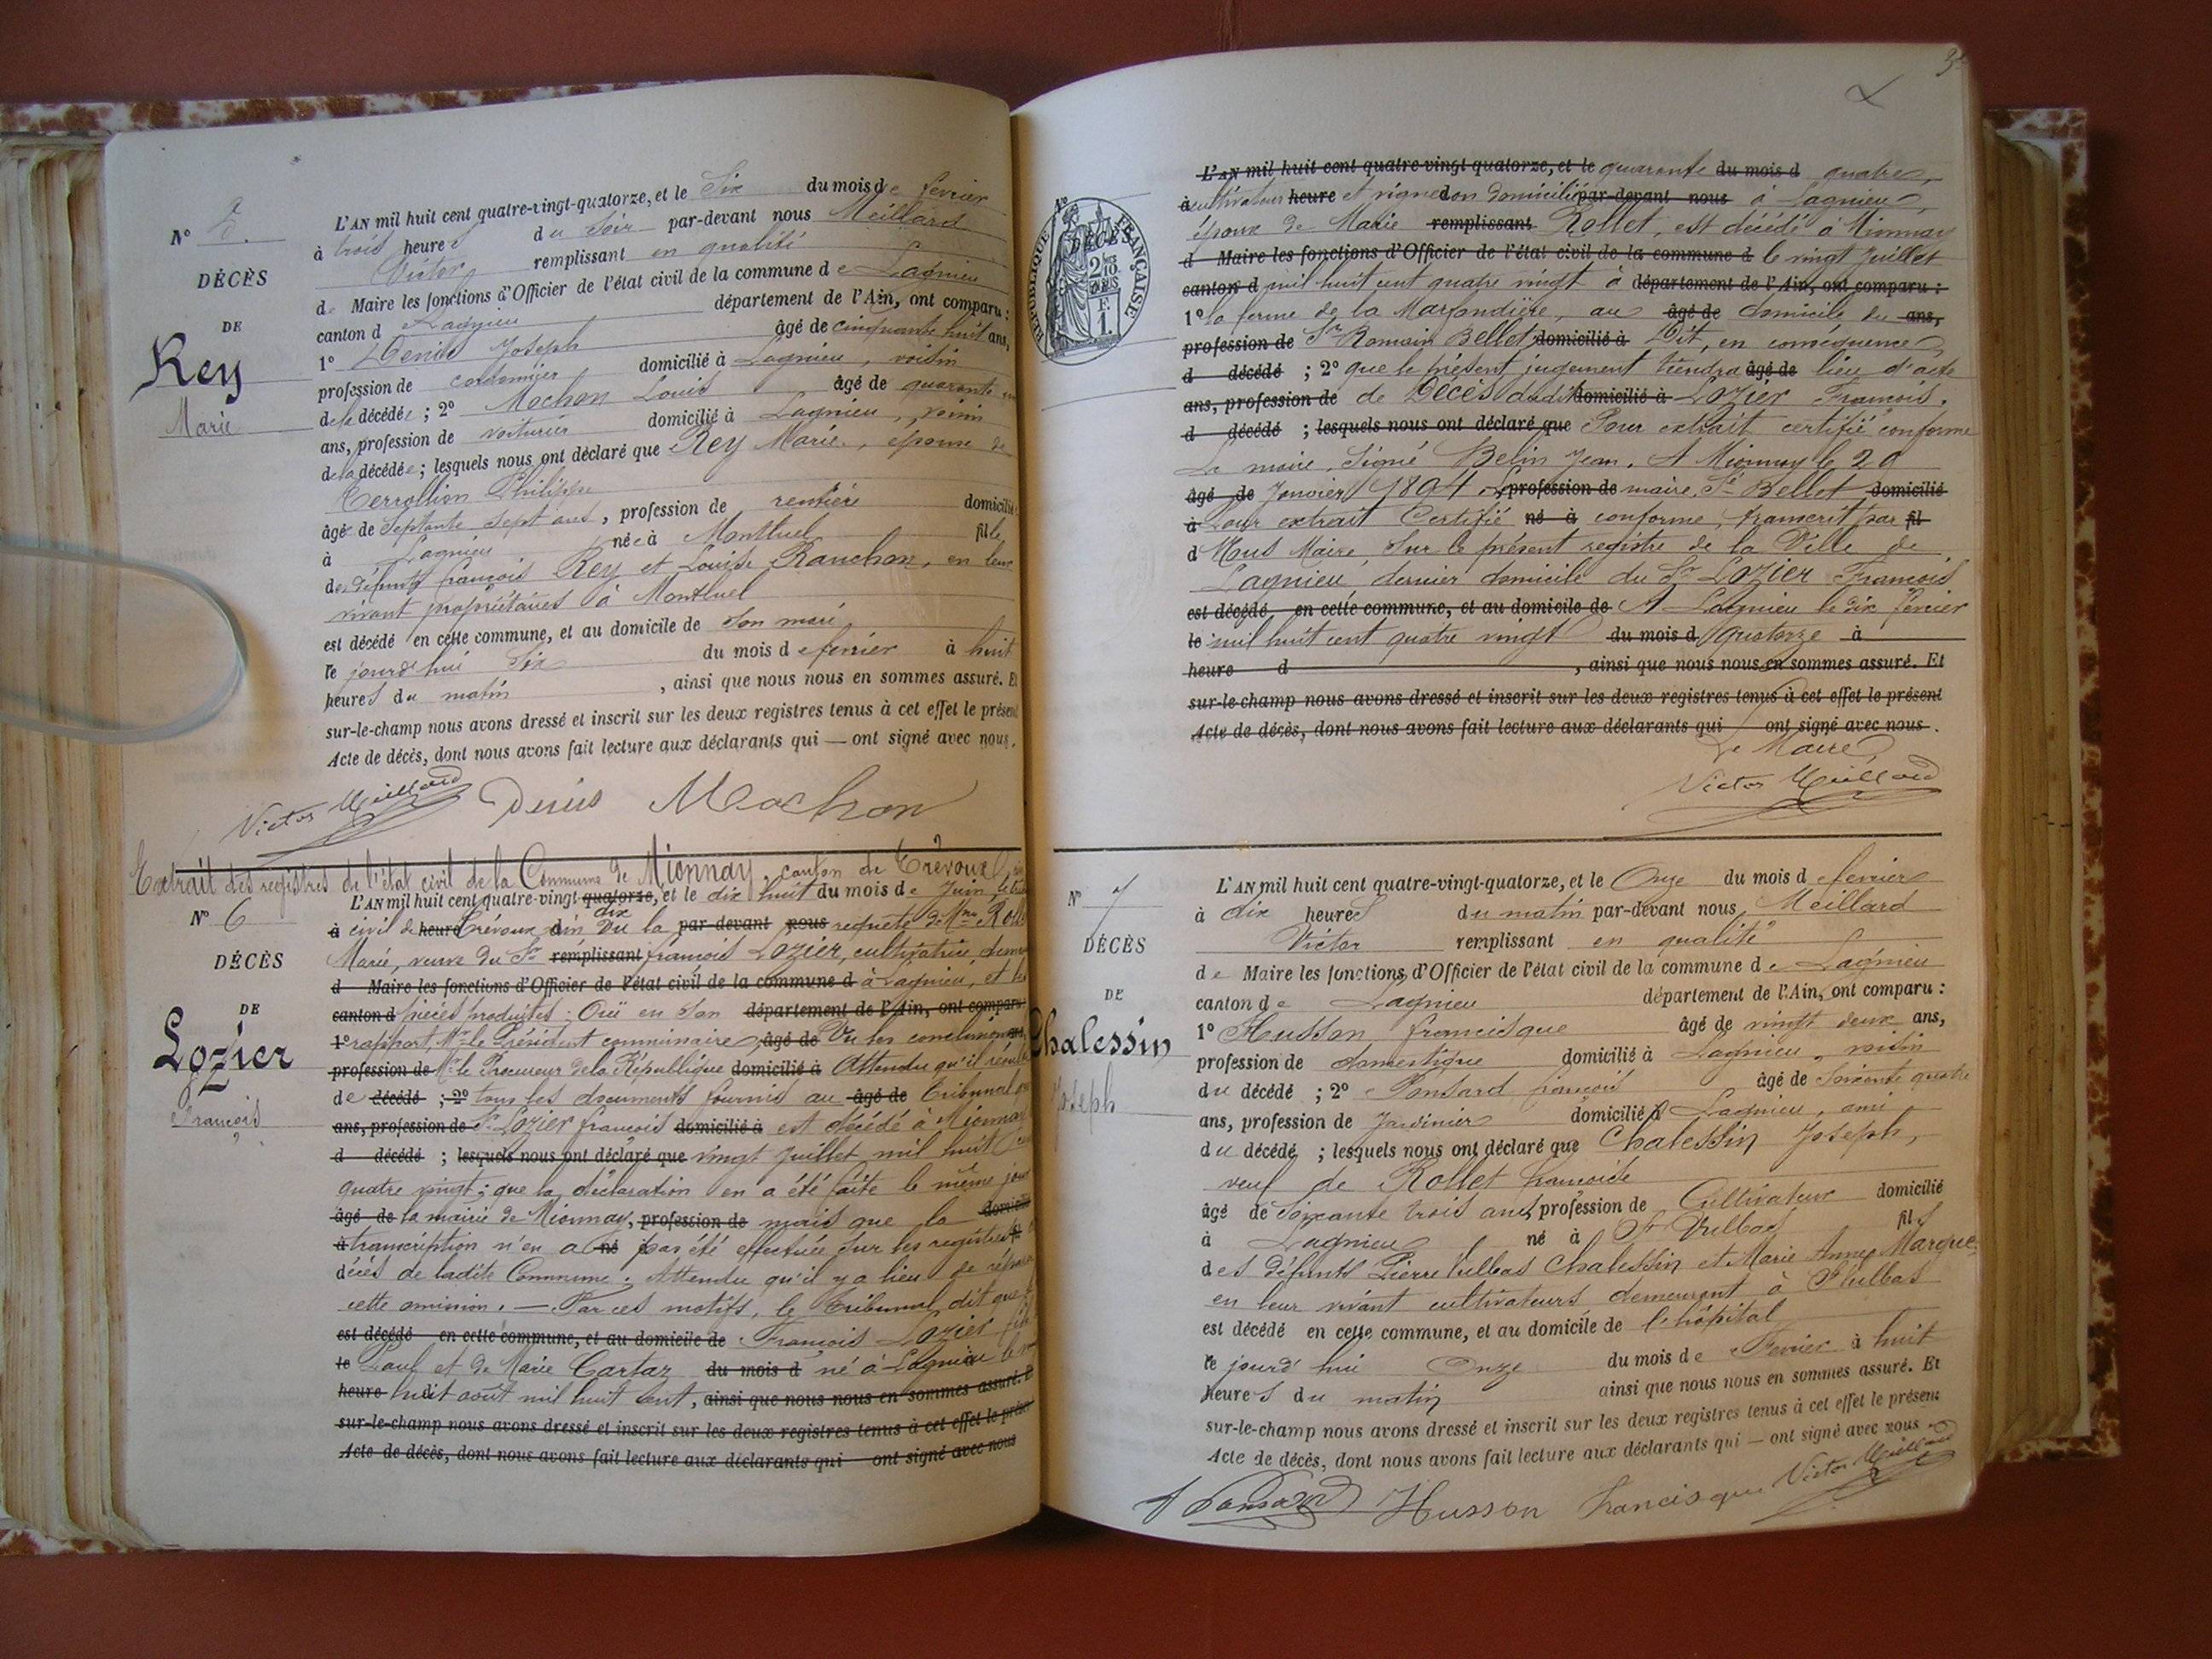 N° 5.
DÉCÈS
DE
Rey
Marie
L'AN mil huit cent quatre-vingt-quatorze, et le Six du mois de fevrier
à trois heures du Soir par-devant nous Meillard
Victor remplissant en qualité
de Maire les fonctions d'Officier de l'état civil de la commune de Lagnieu
canton d Lagnieu département de l'Ain, ont comparu :
1° Denis Joseph âgé de cinquante huit ans,
profession de cordonnier domicilié à Lagnieu, voisin
de la décédée ; 2° Mochon Louis âgé de quarante un
ans, profession de voiturier domicilié à Lagnieu, voisin
de la décédée ; lesquels nous ont déclaré que Rey Marie, épouse de
Terrollion Philippe
âgé de Septante Sept ans, profession de rentière domicilié
à Lagnieu née à Montluel fille
des défunts françois Rey et Louise Ranchon, en leur
vivant propriétaires à Montluel
est décédé en cette commune, et au domicile de Son mari
le jourd'hui Six du mois de fevrier à huit
heures du matin, ainsi que nous nous en sommes assuré. Et
sur-le-champ nous avons dressé et inscrit sur les deux registres tenus à cet effet le présent
Acte de décès, dont nous avons fait lecture aux déclarants qui — ont signé avec nous.
Victor Meillard Denis Mochon
Extrait des registres de l'état civil de la Commune de Mionnay, canton de Trévoux
N° 6
DÉCÈS
DE
Lozier
François
L'AN mil huit cent quatre-vingt-quatorze, et le dix huit du mois de Juin, le
dix
à civil de heure Trévoux ain Vu la par-devant nous requête de Mme Roll
Marie, veuve du Sr remplissant françois Lozier, cultivatrice
d Maire les fonctions d'Officier de l'état civil de la commune d à Lagnieu, et les
canton d pièces produites ; Ouï en Son département de l'Ain, ont comparu
1° rapport, Mr le Président commissaire, âgé de Vu les conclusions ans,
profession de Mr le Procureur de la République domicilié à Attendu qu'il résulte
de décédé ; 2° tous les documents fournis au âgé de Tribunal que
ans, profession de Sr Lozier françois domicilié à est décédé à Mionnay
d décédé ; lesquels nous ont déclaré que vingt Juillet mil huit cent
quatre vingt ; que la déclaration en a été faite le même jour
âgé de la mairie de Mionnay, profession de mais que la domicilié
à transcription n'en a né pas été effectuée sur les registres fil
décès de ladite Commune ; Attendu qu'il y a lieu de réparer
cette omission. — Par ces motifs, le Tribunal dit que
est décédé en cette commune, et au domicile de François Lozier fils
le Paul et de Marie Cartaz du mois d né à Lagnieu le
heure huit août mil huit cent, ainsi que nous nous en sommes assuré. Et
sur-le-champ nous avons dressé et inscrit sur les deux registres tenus à cet effet le présent
Acte de décès, dont nous avons fait lecture aux déclarants qui ont signé avec nous
3
RÉPUBLIQUE FRANÇAISE
DÉCÈS
F. 1.
L'AN mil huit cent quatre-vingt-quatorze, et le quarante du mois d quatre,
à cultivateur heure et vigneron domicilié par-devant nous à Lagnieu,
époux de Marie remplissant Rollet, est décédé à Mionnay
d Maire les fonctions d'Officier de l'état civil de la commune d le vingt Juillet
canton d mil huit cent quatre vingt à département de l'Ain, ont comparu :
1° la ferme de la Marfondière, au âgé de domicile du ans,
profession de Sr Romain Bellet, domicilié à Dit, en conséquence,
d décédé ; 2° que le présent jugement tiendra âgé de lieu d'acte
ans, profession de de Décès dudit domicilié à Lozier François.
d décédé ; lesquels nous ont déclaré que Pour extrait certifié conforme
Le maire, Signé Belin Jean. A Mionnay le 20
âgé de Janvier 1894. profession de maire, Sé Bellet domicilié
à Pour extrait Certifié né à conforme, transcrit par fil
d Nous Maire, Sur le présent registre de la Ville de
Lagnieu, dernier domicile du Sr Lozier François
est décédé en cette commune, et au domicile de A Lagnieu le dix février
le mil huit cent quatre vingt du mois d quatorze à
heure d , ainsi que nous nous en sommes assuré. Et
sur-le-champ nous avons dressé et inscrit sur les deux registres tenus à cet effet le présent
Acte de décès, dont nous avons fait lecture aux déclarants qui ont signé avec nous.
Le Maire
Victor Meillard
N° 7
DÉCÈS
DE
Chalessin
Joseph
L'AN mil huit cent quatre-vingt-quatorze, et le Onze du mois d fevrier
à dix heures du matin par-devant nous Meillard
Victor remplissant en qualité
de Maire les fonctions d'Officier de l'état civil de la commune de Lagnieu
canton de Lagnieu département de l'Ain, ont comparu :
1° Husson francisque âgé de vingt deux ans,
profession de domestique domicilié à Lagnieu, voisin
du décédé ; 2° Ponsard françois âgé de Soixante quatre
ans, profession de Jardinier domicilié à Lagnieu, ami
du décédé ; lesquels nous ont déclaré que Chalessin Joseph,
veuf de Rollet françoise
âgé de Soixante trois ans, profession de Cultivateur domicilié
à Lagnieu né à St Vulbas fils
des défunts Pierre Vulbas Chalessin et Marie Anne Marque
en leur vivant cultivateurs demeurant à St Vulbas
est décédé en cette commune, et au domicile de l'hôpital
le jourd'hui Onze du mois de Fevrier à huit
heures du matin ainsi que nous nous en sommes assuré. Et
sur-le-champ nous avons dressé et inscrit sur les deux registres tenus à cet effet le présent
Acte de décès, dont nous avons fait lecture aux déclarants qui — ont signé avec nous.
Ponsard Husson francisque Victor Meillard